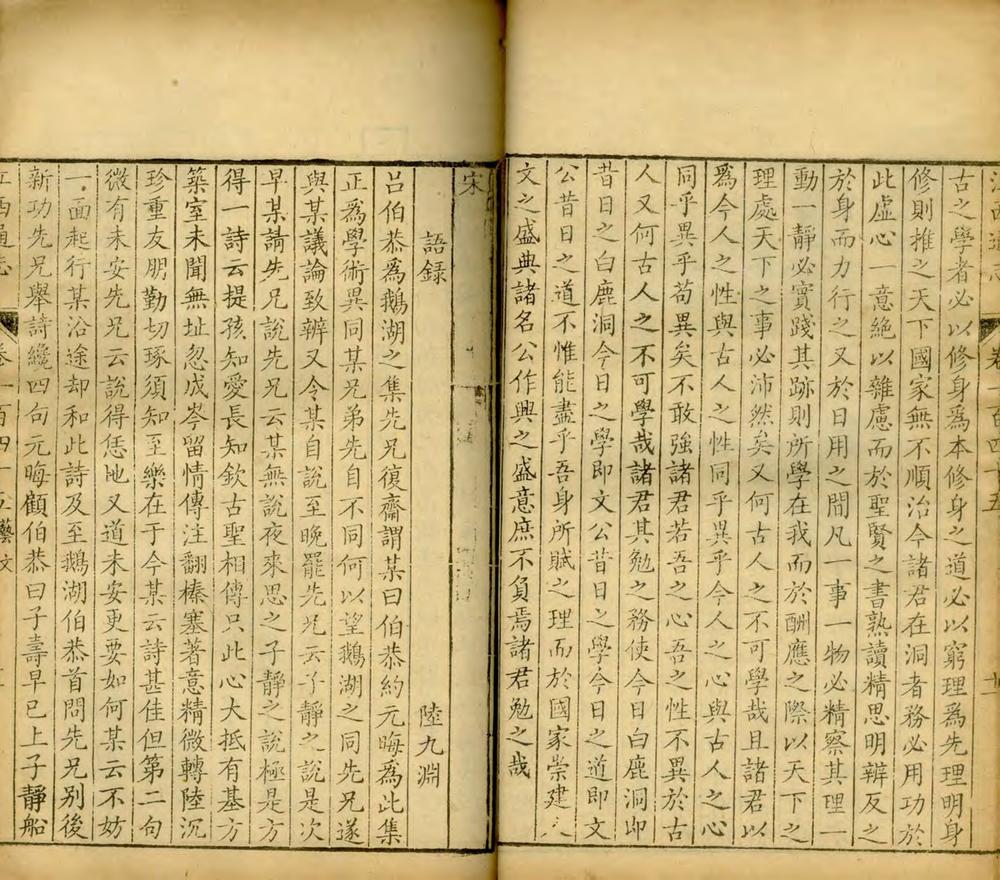 古之學者必以修身爲本修身之道必以窮理爲先理明身
修則推之天下國家無不順治今諸君在洞者務必用功於
此虛心一意絶以雜慮而於聖賢之書熟讀精思明辨反之
於身而力行之又於日用之間凡一事一物必精察其理一
動一靜必實踐其跡則所學在我而於酬應之際以天下之
理處天下之事必沛然矣又何古人之不可學哉且諸君以
爲今人之性與古人之性同乎異乎今人之心與古人之心
同乎異乎苟異矣不敢強諸君若吾之心吾之性不異於古
人又何古人之不可學哉諸君其勉之務使今日白鹿洞卽
昔日之白鹿洞今日之學即文公昔日之學今日之道即文
公昔日之道不惟能盡乎吾身所賦之理而於國家崇建
文之盛典諸名公作興之盛意庶不負焉諸君勉之哉
宋
語録 陸九淵
呂伯恭爲鵝湖之集先兄復齋謂某曰伯恭約元晦爲此集
正爲學術異同某兄弟先自不同何以望鵝湖之同先兄遂
與某議論致辨又令某自說至晩罷先兄云子靜之說是次
早某請先兄說先兄云某無說夜來思之子靜之說極是方
得一詩云提孩知愛長知欽古聖相傳只此心大抵有基方
築室未聞無址忽成岑留情傳注翻榛塞著意精微轉陸沉
珍重友朋勤切琢須知至樂在于今某云詩甚佳但第二句
微有未安先兄云說得恁地又道未安更要如何某云不妨
一面起行某沿途却和此詩及至鵝湖伯恭首問先兄別後
新功先兄舉詩纔四句元晦顧伯恭曰子壽早已上子靜船
江西通志 卷一百四十五 藝文